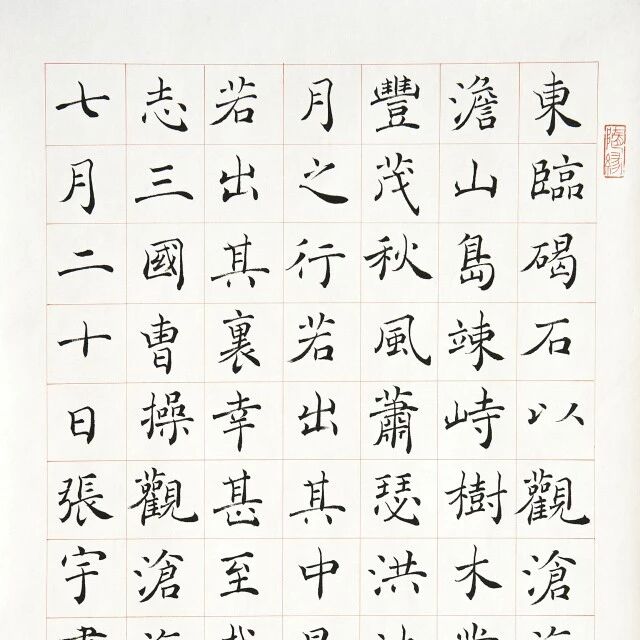 東臨碣石以觀滄
澹山島竦峙樹木
豐茂秋風蕭瑟洪
月之行若出其中
若出其裏幸甚至
志三國曹操觀滄
七月二十日張宇